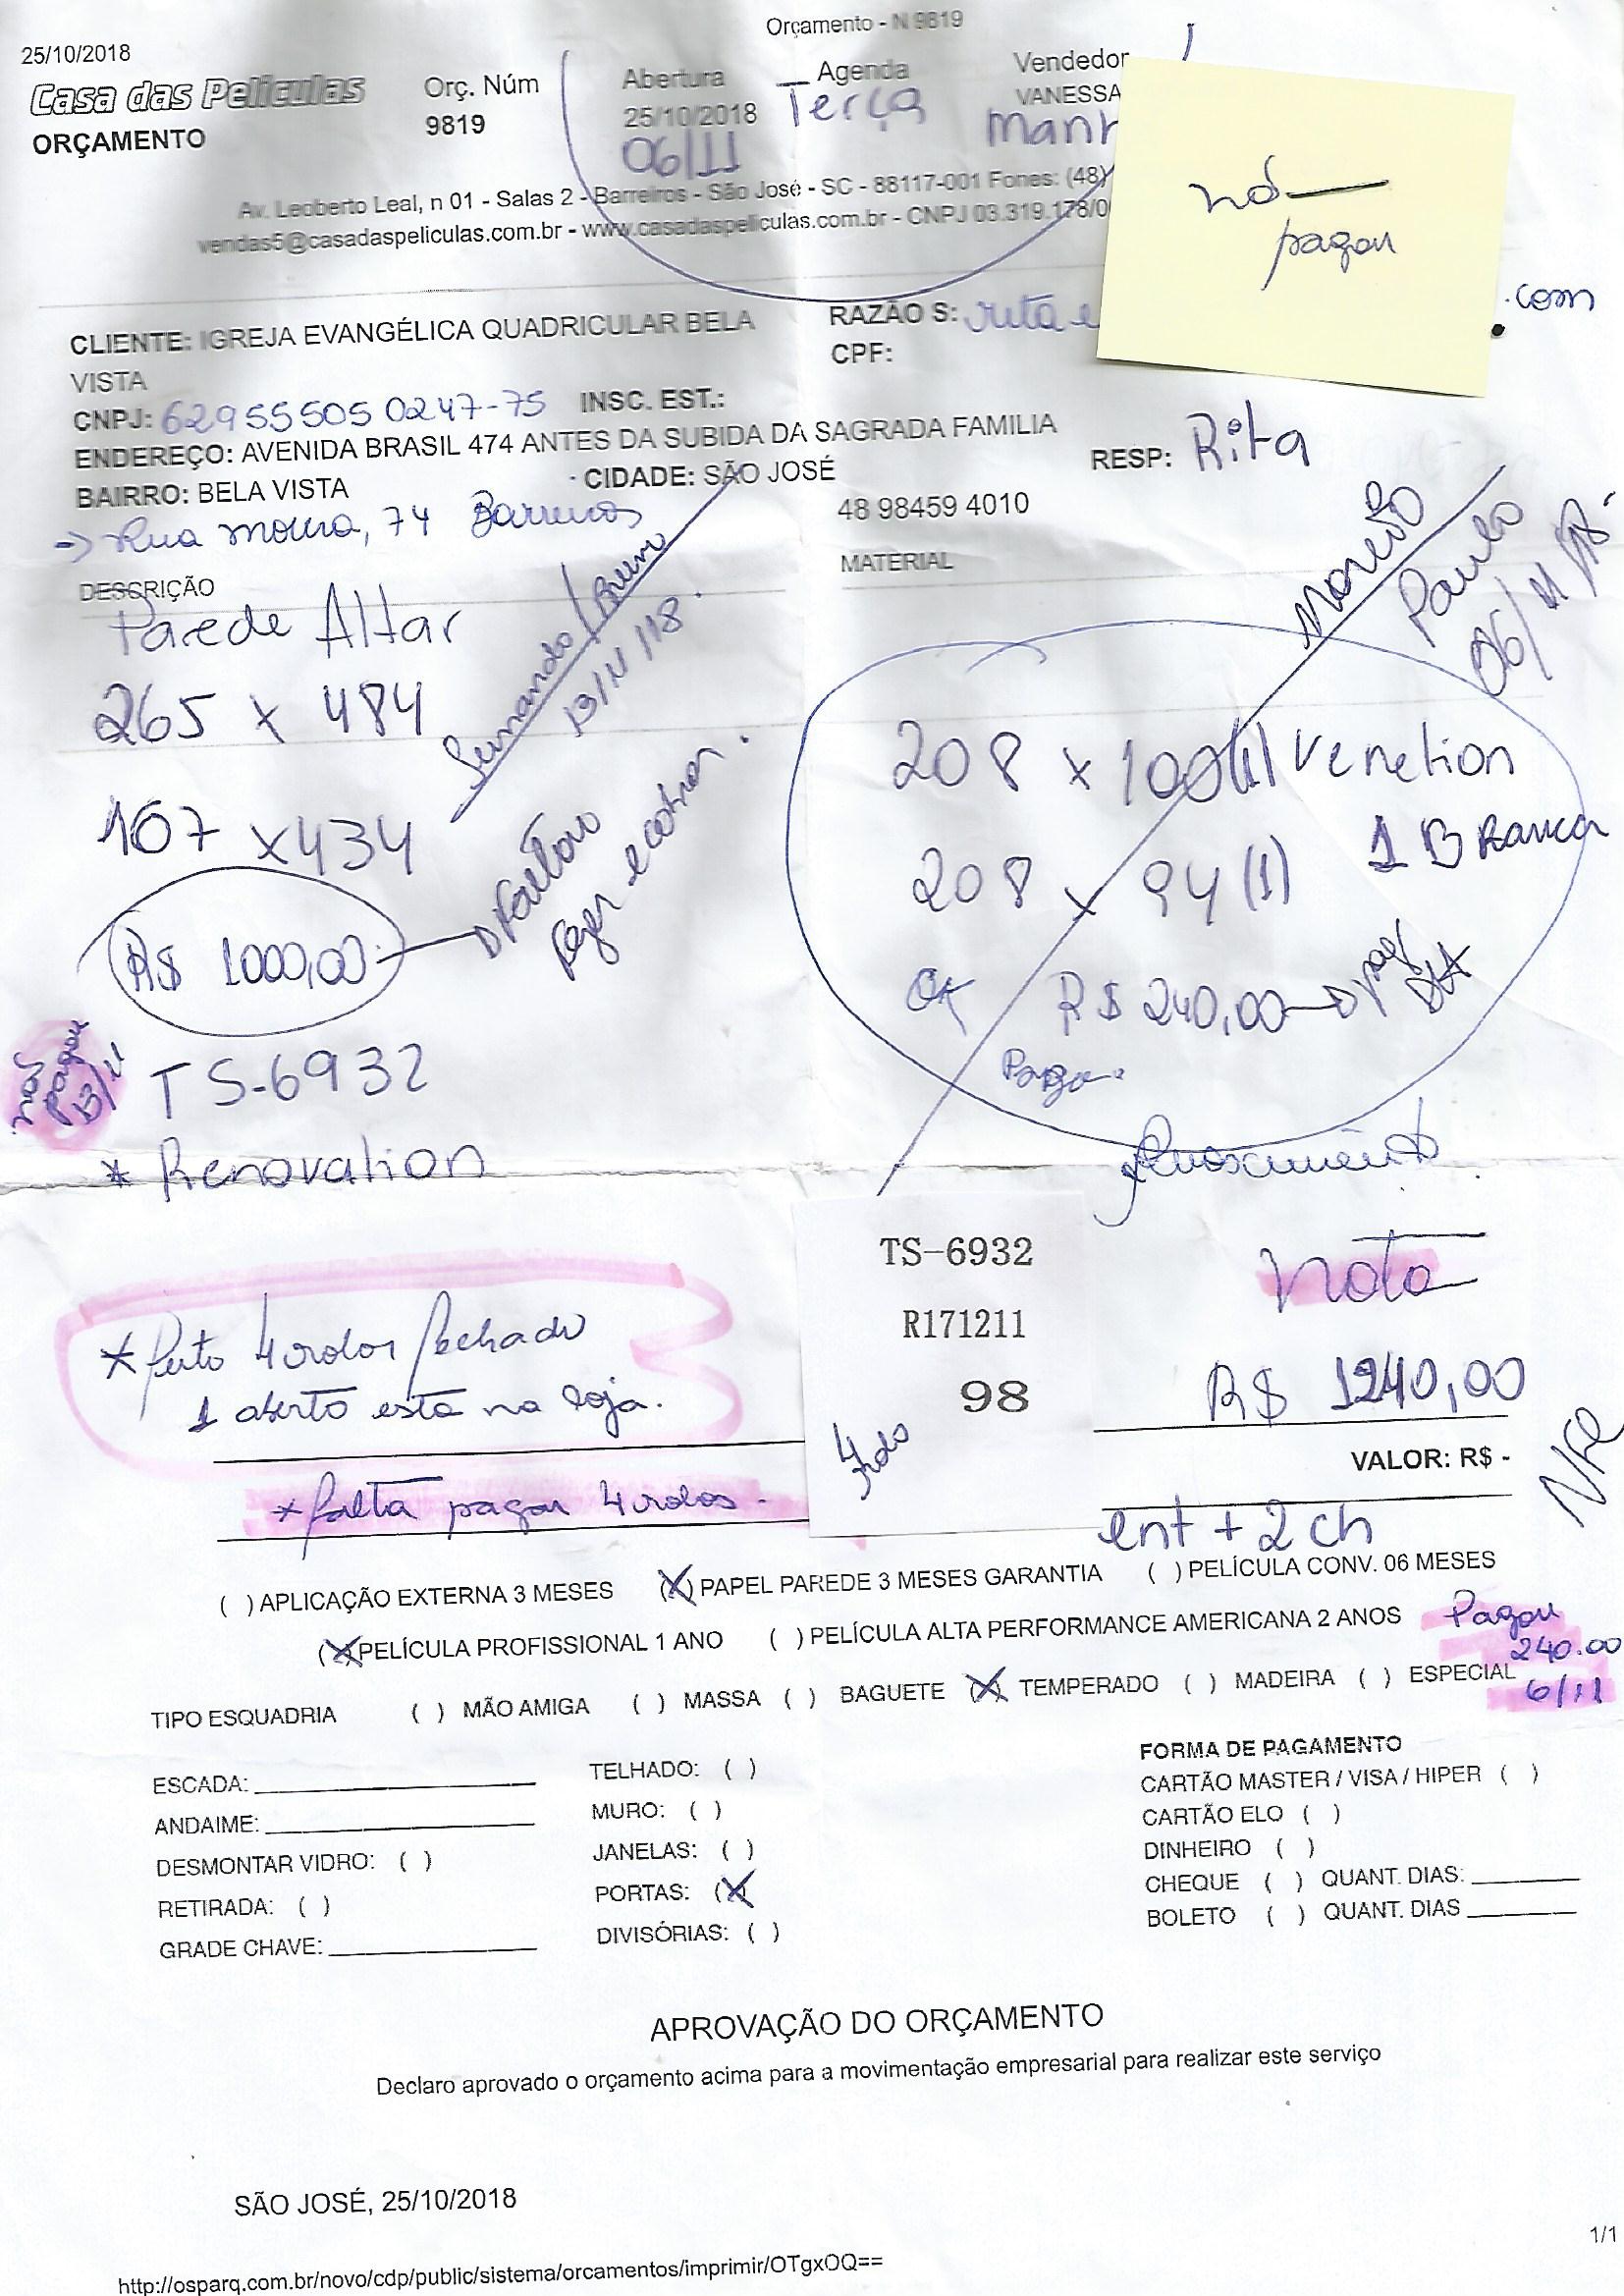 Orçamento - N 9819
25/10/2018
Casa das Peliculas
ORÇAMENTO
Orç. Núm
9819
Abertura
25/10/2018
06/11
Agenda
Terça
Vendedor
VANESSA
Manh
Av. Leoberto Leal, n 01 - Salas 2 - Barreiros - São José - SC - 88117-001 Fones: (48)
vendas5@casadaspeliculas.com.br - www.casadaspeliculas.com.br - CNPJ 03.319.178/0
não
pagou
.com
CLIENTE: IGREJA EVANGÉLICA QUADRICULAR BELA
VISTA
RAZÃO S:
CPF:
CNPJ: 62955505 0247-75 INSC. EST.:
ENDEREÇO: AVENIDA BRASIL 474 ANTES DA SUBIDA DA SAGRADA FAMILIA
RESP: Rita
BAIRRO: BELA VISTA
CIDADE: SÃO JOSÉ
48 98459 4010
-> Rua moura, 74 Barreiros
DESCRIÇÃO
MATERIAL
Parede Altar
265 x 484
167 x 434
R$ 1000,00
Fernando/Bruno
13/11/18.
Faltou
pagar e cobrar.
Paulo
06/11/18.
208 x 100 (1) Venetion
1 Branca
208 x 94 (1)
OK R$ 240,00
Pagou
não
pagou
13/11
TS-6932
* Renovation
TS-6932
R171211
98
4 rolo
Nota
R$ 1240,00
VALOR: R$ -
ent + 2 ch
* feito 4 rolos fechado
1 aberto está na loja.
* falta pagar 4 rolos -
( ) APLICAÇÃO EXTERNA 3 MESES (X) PAPEL PAREDE 3 MESES GARANTIA ( ) PELÍCULA CONV. 06 MESES
(X) PELÍCULA PROFISSIONAL 1 ANO ( ) PELÍCULA ALTA PERFORMANCE AMERICANA 2 ANOS
Pagou
240.00
6/11
TIPO ESQUADRIA ( ) MÃO AMIGA ( ) MASSA ( ) BAGUETE (X) TEMPERADO ( ) MADEIRA ( ) ESPECIAL
ESCADA:
ANDAIME:
DESMONTAR VIDRO: ( )
RETIRADA: ( )
GRADE CHAVE:
TELHADO: ( )
MURO: ( )
JANELAS: ( )
PORTAS: (X)
DIVISÓRIAS: ( )
FORMA DE PAGAMENTO
CARTÃO MASTER / VISA / HIPER ( )
CARTÃO ELO ( )
DINHEIRO ( )
CHEQUE ( ) QUANT. DIAS:
BOLETO ( ) QUANT. DIAS
APROVAÇÃO DO ORÇAMENTO
Declaro aprovado o orçamento acima para a movimentação empresarial para realizar este serviço
SÃO JOSÉ, 25/10/2018
1/1
http://osparq.com.br/novo/cdp/public/sistema/orcamentos/imprimir/OTgxOQ==